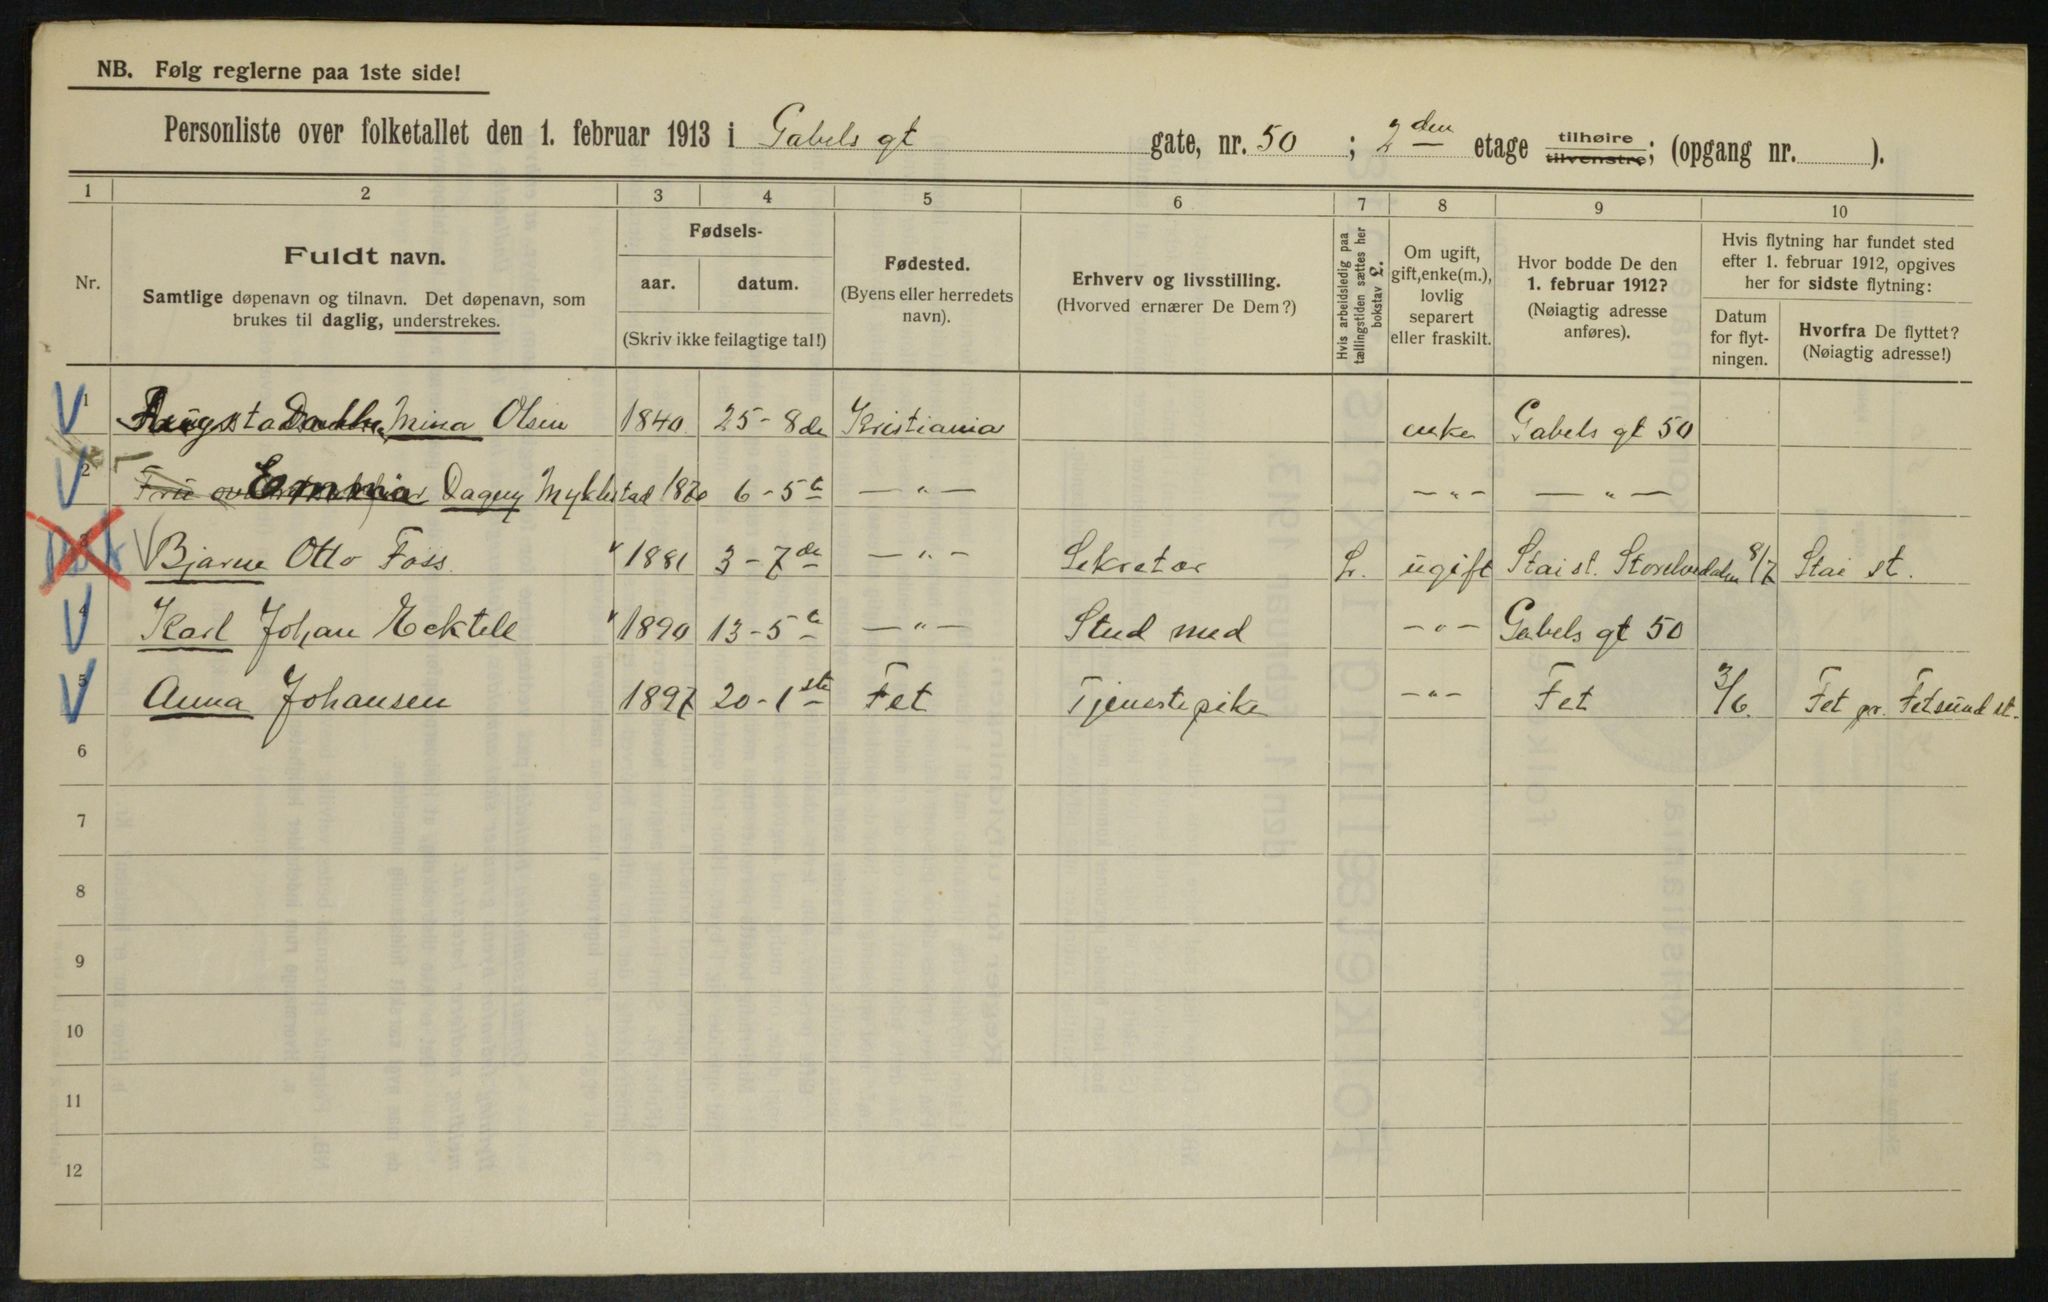 NB. Følg reglerne paa 1ste side!
Personliste over folketallet den 1. februar 1913 i Gabels gt gate, nr. 50 ; 2den etage tilhøire tilvenstre; (opgang nr. ).
1 2 3 4 5 6 7 8 9 10
Nr.
Fuldt navn.
Samtlige døpenavn og tilnavn. Det døpenavn, som
brukes til daglig, understrekes.
Fødsels-
aar. datum.
(Skriv ikke feilagtige tal!)
Fødested.
(Byens eller herredets
navn).
Erhverv og livsstilling.
(Hvorved ernærer De Dem?)
Hvis arbeidsledig paa
tællingstiden sættes her
bokstav L.
Om ugift,
gift, enke(m.),
lovlig
separert
eller fraskilt.
Hvor bodde De den
1. februar 1912?
(Nøiagtig adresse
anføres).
Hvis flytning har fundet sted
efter 1. februar 1912, opgives
her for sidste flytning:
Datum
for flyt-
ningen.
Hvorfra De flyttet?
(Nøiagtig adresse!)
1 Augusta Mina Olsen 1840 25-8de Kristiania enke Gabels gt 50
2 Fru Emma Dagny Myklestad 1870 6-5te — " — — " — — " —
3 Bjarne Otto Foss. 1881 3-7de — " — Sekretær L. ugift Stai st. Storelvedalen 8/7 Stai st.
4 Karl Johan Hektell 1890 13-5te — " — Stud med — " — Gabels gt 50
5 Anna Johansen 1897 20-1ste Fet Tjenestepike — " — Fet 3/6. Fet pr. Fetsund st.
6
7
8
9
10
11
12